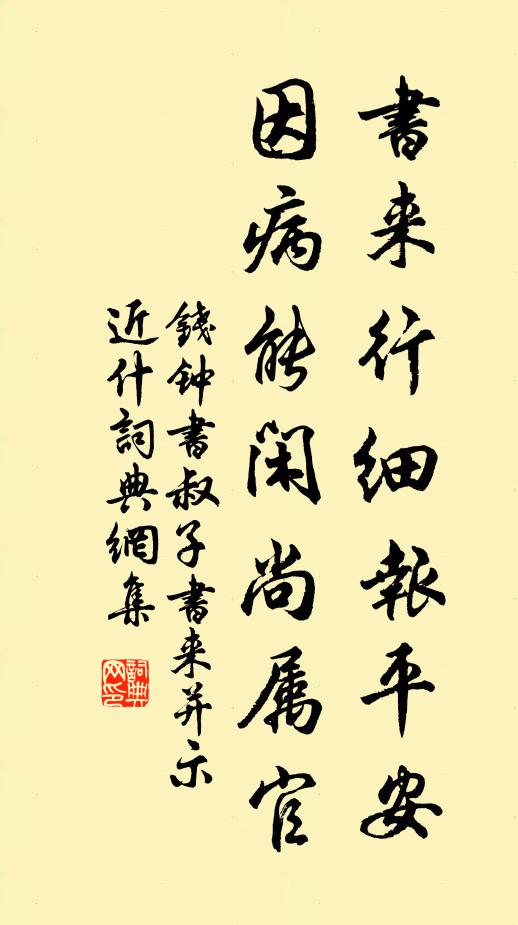 書来行细報平安
因病能闲尚属官
錢钟書叔子書来并示
近什詞典網集
詞典
网印